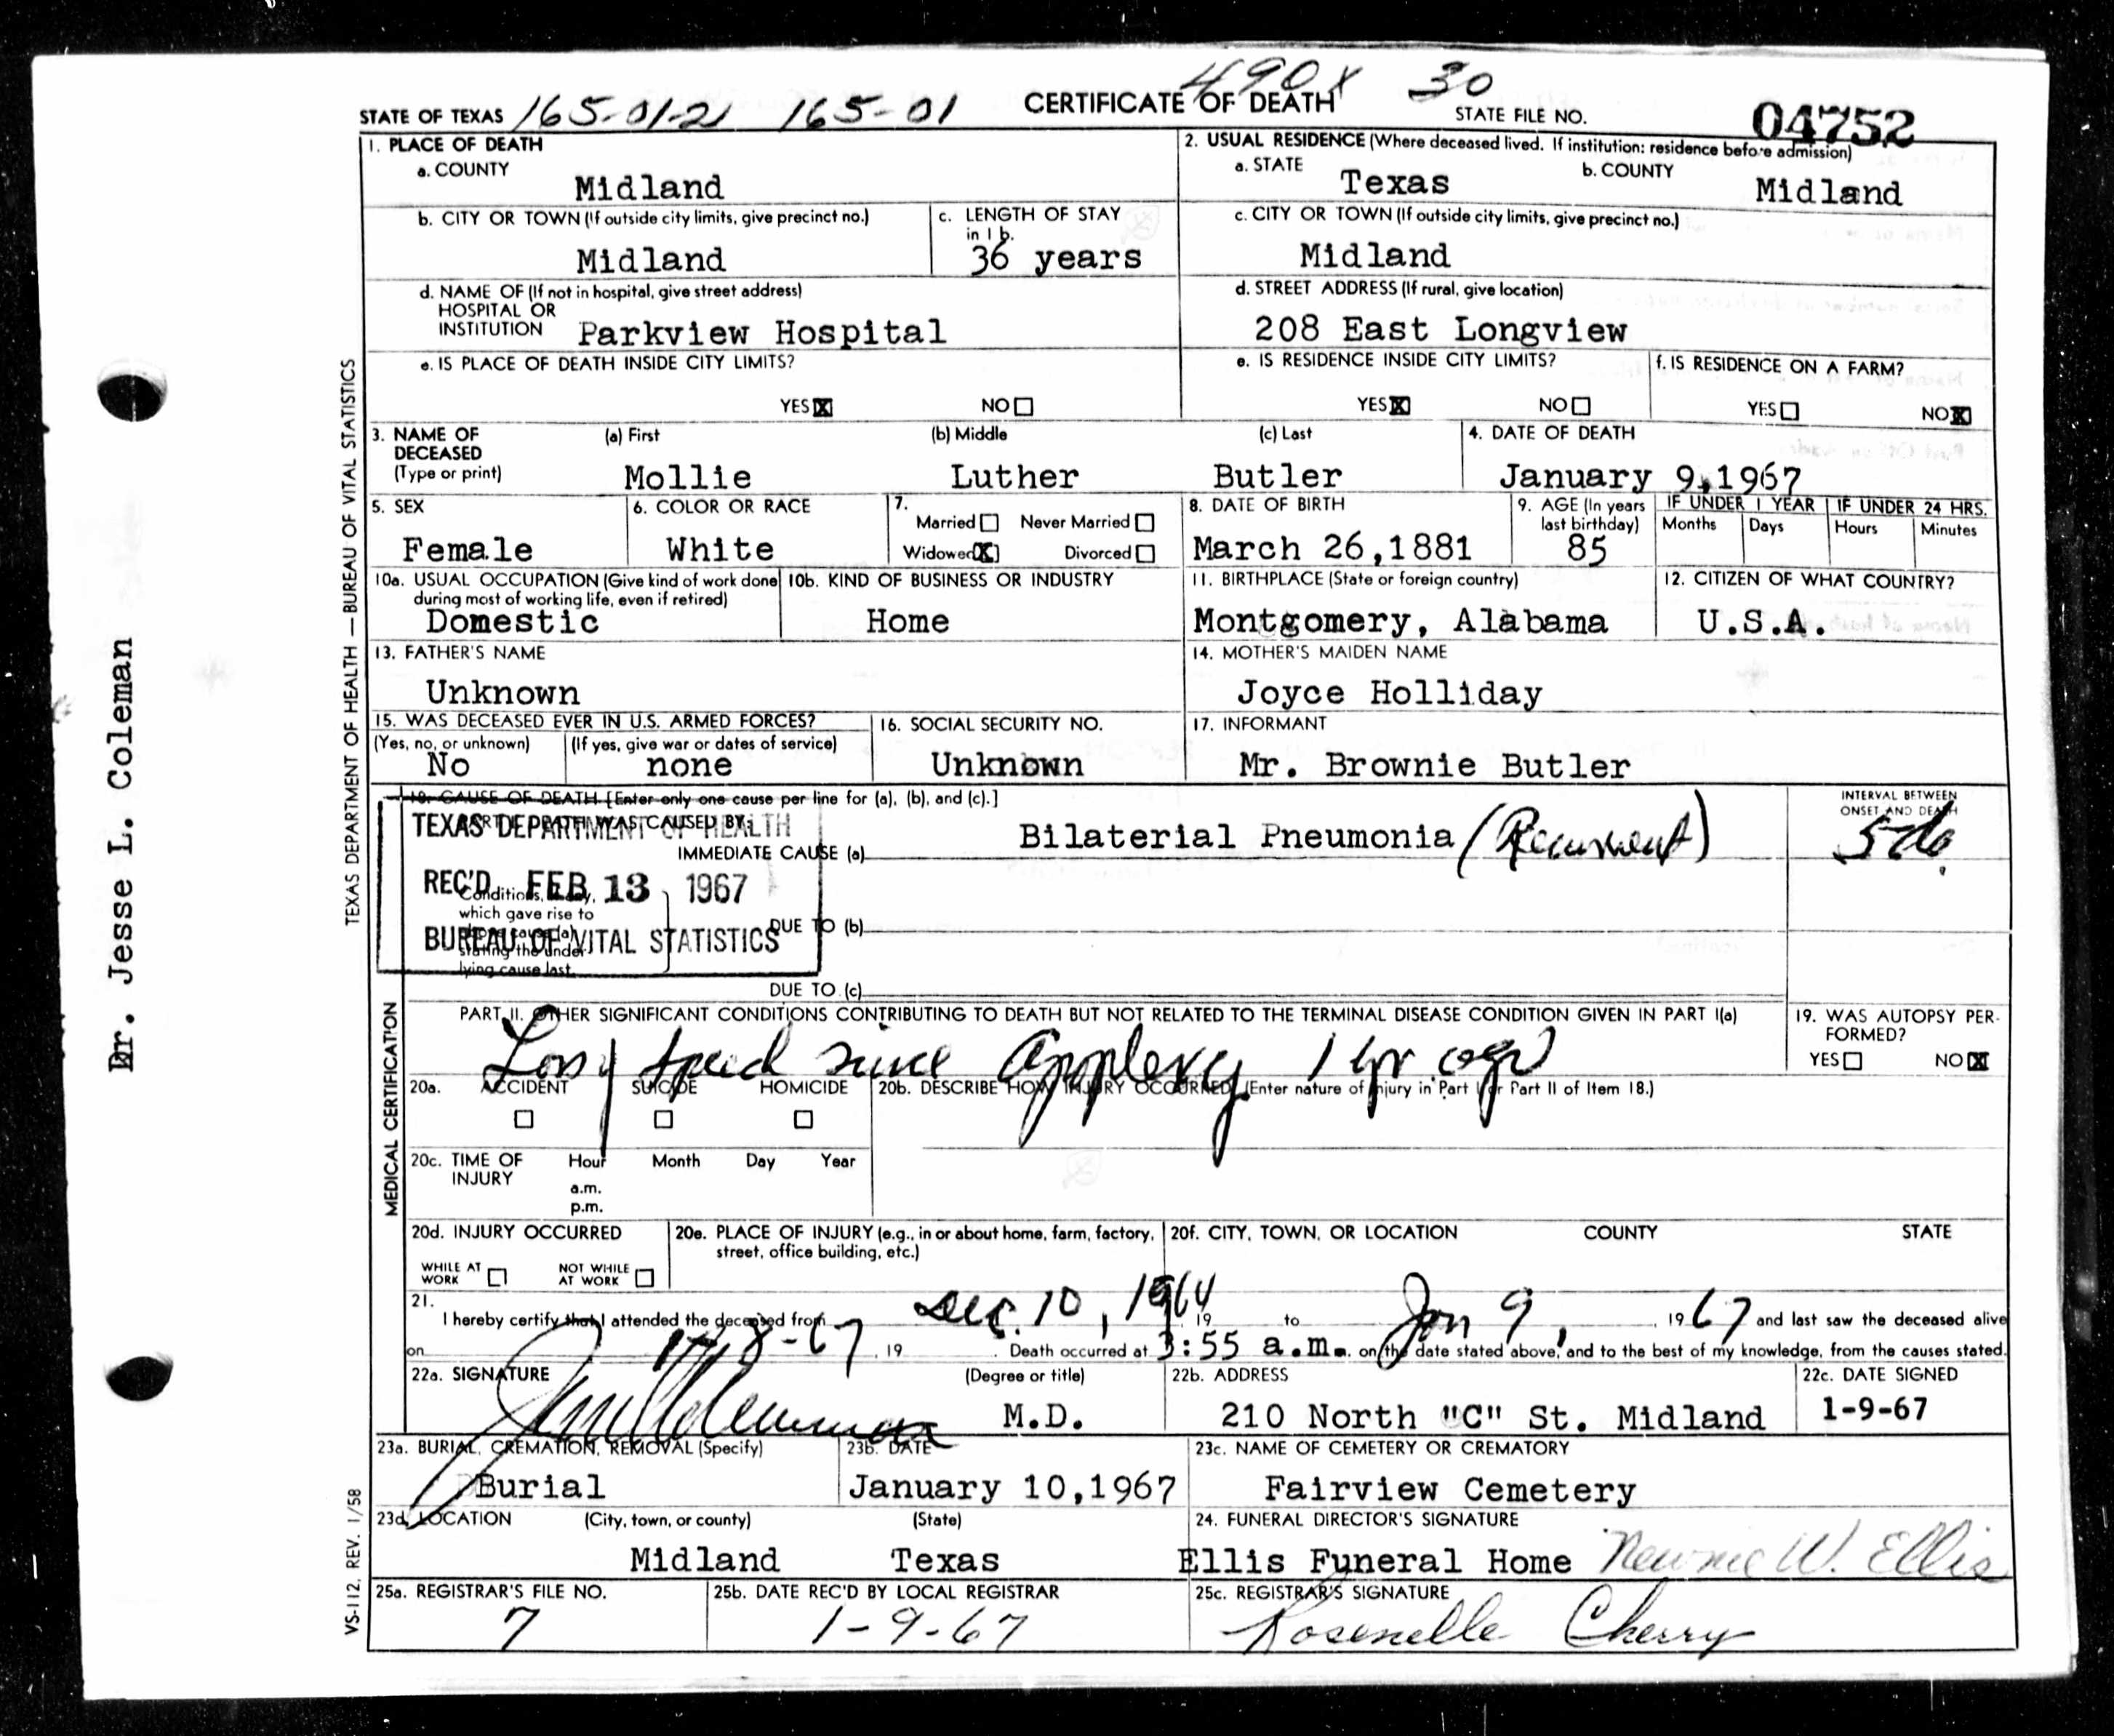 490X 30
STATE OF TEXAS 165-01-21 165-01 CERTIFICATE OF DEATH STATE FILE NO. 04752
1. PLACE OF DEATH
a. COUNTY
Midland
2. USUAL RESIDENCE (Where deceased lived. If institution: residence before admission)
a. STATE b. COUNTY
Texas Midland
b. CITY OR TOWN (If outside city limits, give precinct no.)
Midland
c. LENGTH OF STAY
in 1 b.
36 years
c. CITY OR TOWN (If outside city limits, give precinct no.)
Midland
d. NAME OF (If not in hospital, give street address)
HOSPITAL OR
INSTITUTION Parkview Hospital
d. STREET ADDRESS (If rural, give location)
208 East Longview
e. IS PLACE OF DEATH INSIDE CITY LIMITS?
YES X NO
e. IS RESIDENCE INSIDE CITY LIMITS?
YES X NO
f. IS RESIDENCE ON A FARM?
YES NO X
3. NAME OF DECEASED
(Type or print)
(a) First (b) Middle (c) Last
Mollie Luther Butler
4. DATE OF DEATH
January 9,1967
5. SEX
Female
6. COLOR OR RACE
White
7.
Married Never Married
Widowed X Divorced
8. DATE OF BIRTH
March 26,1881
9. AGE (In years
last birthday)
85
IF UNDER 1 YEAR IF UNDER 24 HRS.
Months Days Hours Minutes
10a. USUAL OCCUPATION (Give kind of work done
during most of working life, even if retired)
Domestic
10b. KIND OF BUSINESS OR INDUSTRY
Home
11. BIRTHPLACE (State or foreign country)
Montgomery, Alabama
12. CITIZEN OF WHAT COUNTRY?
U.S.A.
13. FATHER'S NAME
Unknown
14. MOTHER'S MAIDEN NAME
Joyce Holliday
15. WAS DECEASED EVER IN U.S. ARMED FORCES?
(Yes, no, or unknown) (If yes, give war or dates of service)
No none
16. SOCIAL SECURITY NO.
Unknown
17. INFORMANT
Mr. Brownie Butler
18. CAUSE OF DEATH [Enter only one cause per line for (a), (b), and (c).]
PART I. DEATH WAS CAUSED BY:
IMMEDIATE CAUSE (a) Bilaterial Pneumonia (Recurrent)
INTERVAL BETWEEN
ONSET AND DEATH
TEXAS DEPARTMENT OF HEALTH
REC'D FEB 13 1967
BUREAU OF VITAL STATISTICS
Conditions, if any,
which gave rise to
above cause (a),
stating the under-
lying cause last.
DUE TO (b)
DUE TO (c)
PART II. OTHER SIGNIFICANT CONDITIONS CONTRIBUTING TO DEATH BUT NOT RELATED TO THE TERMINAL DISEASE CONDITION GIVEN IN PART I(a)
since Apoplexy 1 yr. ago
19. WAS AUTOPSY PER-
FORMED?
YES NO X
20a. ACCIDENT SUICIDE HOMICIDE
20b. DESCRIBE HOW INJURY OCCURRED. (Enter nature of injury in Part I or Part II of Item 18.)
20c. TIME OF
INJURY
Hour Month Day Year
a.m.
p.m.
20d. INJURY OCCURRED
WHILE AT
WORK
NOT WHILE
AT WORK
20e. PLACE OF INJURY (e.g., in or about home, farm, factory,
street, office building, etc.)
20f. CITY, TOWN, OR LOCATION COUNTY STATE
21.
I hereby certify that I attended the deceased from Dec. 10, 1964, 19 to Jan 9, 1967 and last saw the deceased alive
on 1-8-67, 19 . Death occurred at 3:55 a.m. on the date stated above, and to the best of my knowledge, from the causes stated.
22a. SIGNATURE (Degree or title)
M.D.
22b. ADDRESS
210 North "C" St. Midland
22c. DATE SIGNED
1-9-67
23a. BURIAL, CREMATION, REMOVAL (Specify)
Burial
23b. DATE
January 10,1967
23c. NAME OF CEMETERY OR CREMATORY
Fairview Cemetery
23d. LOCATION (City, town, or county) (State)
Midland Texas
24. FUNERAL DIRECTOR'S SIGNATURE
Ellis Funeral Home Newnie W. Ellis
25a. REGISTRAR'S FILE NO.
7
25b. DATE REC'D BY LOCAL REGISTRAR
1-9-67
25c. REGISTRAR'S SIGNATURE
Rosenelle Cherry
TEXAS DEPARTMENT OF HEALTH — BUREAU OF VITAL STATISTICS
MEDICAL CERTIFICATION
VS-112, REV. 1/58
Dr. Jesse L. Coleman